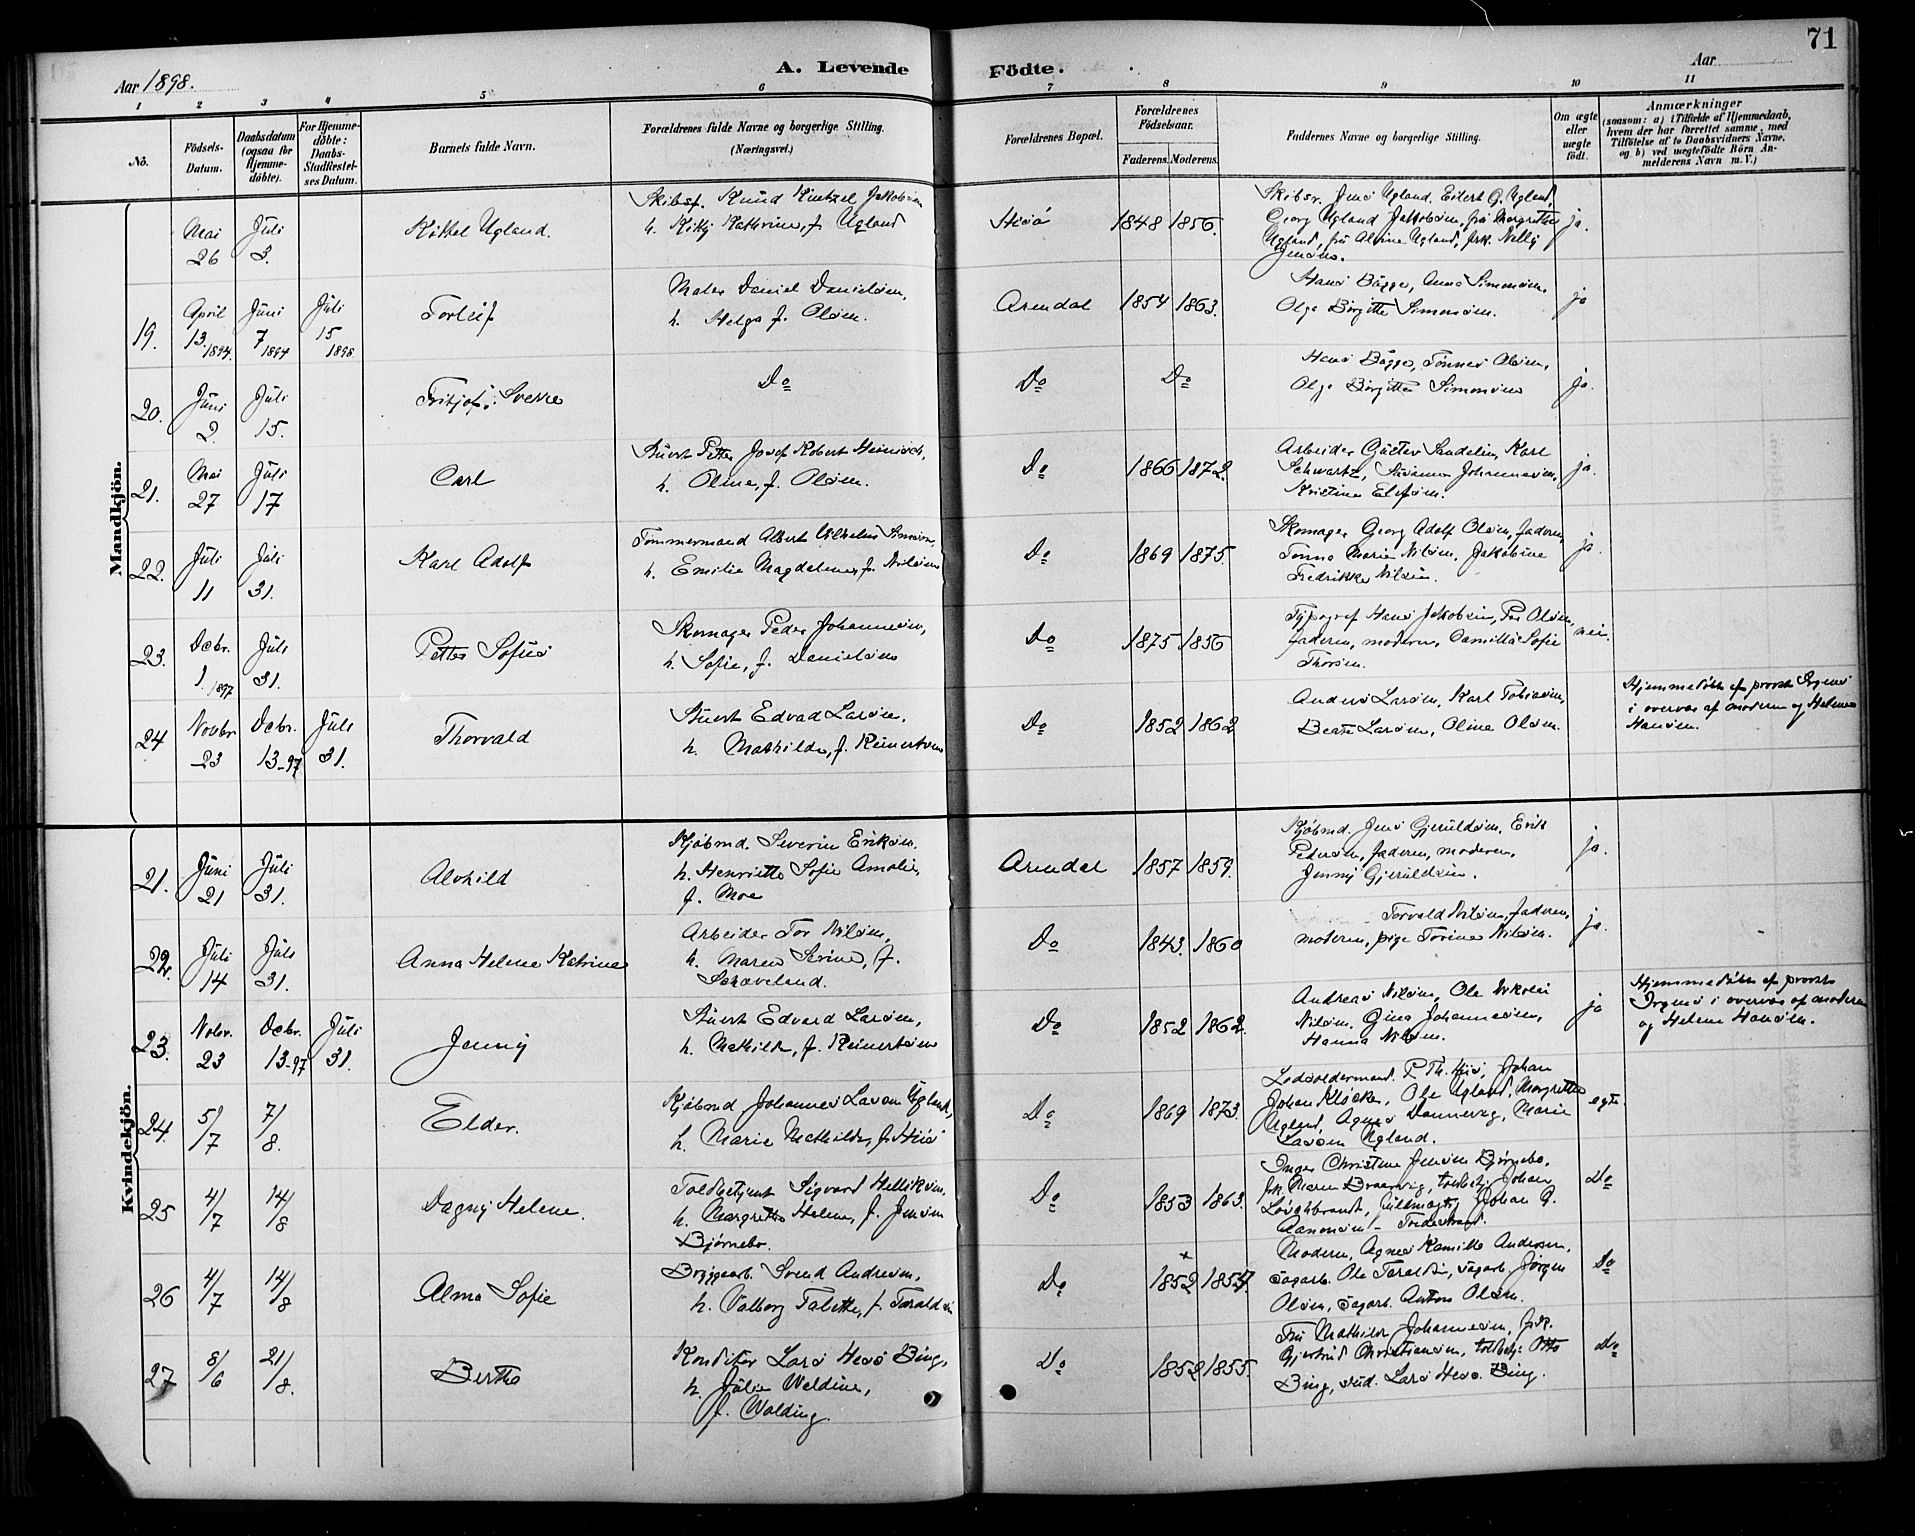 71
Aar 1898.
A. Levende
Födte.
Aar
1 2 3 4 5 6 7 8 9 10 11
No.
Födsels-
Datum.
Daabsdatum
(ogsaa for
Hjemme-
döbte).
For Hjemme-
döbte:
Daabs-
Stadfæstel-
ses Datum.
Barnets fulde Navn.
Forældrenes fulde Navne og borgerlige Stilling.
(Næringsvei.)
Forældrenes Bopæl.
Forældrenes
Födselsaar.
Faderens. Moderens.
Faddernes Navne og borgerlige Stilling.
Om ægte
eller
uægte
født.
Anmærkninger
(saasom: a) i Tilfælde af Hjemmedaab,
hvem der har forrettet samme, med
Tilföielse af to Daabsvidners Navne,
og b) ved uægtefödte Börn An-
melderens Navn m. V.)
Mandkjön.
Mai
26
Juli
3.
Kittel Ugland.
Skibsf. Knud Kintzel Jakobsen
h. Kitty Kathrine f. Ugland
Hisö
1848 1856.
Skibsr. Jens Ugland. Eilert G. Ugland,
Georg Ugland Jakobsen, fru Margrethe
Ugland, fru Alvine Ugland, frk. Nelly
Jensen.
ja.
19.
April
13. 1894.
Juni
7 1894
Juli
15 1898
Torleif
Maler Daniel Danielsen,
h. Helga f. Olsen.
Arendal
1854 1863.
Hans Bagge, Anna Simonsen,
Olga Birgitte Simonsen.
ja
20.
Juni
2.
Juli
15.
Fritjof Sverre
Do
Do
Do
Hans Bagge, Tønnes Olsen,
Olga Birgitte Simonsen
ja.
21.
Mai
27
Juli
17
Carl
Stuert Petter Josef Robert Heinrich,
h. Oline, f. Olsen.
Do
1866 1872.
Arbeider Gustav Sandelin, Karl
Schwartz, Susanne Johannesen,
Kristine Elefsen.
ja.
22.
Juli
11
Juli
31.
Karl Adolf
Tømmermand Albert Vilhelm Simonsen,
h. Emilie Magdalene, f. Nilsen
Do
1869 1875.
Skomager Georg Adolf Olsen, faderen,
Tonna Marie Nilsen, Jakobine
Fredrikke Nilsen.
ja.
23.
Dcbr.
1. 1897
Juli
31.
Petter Sofus
Skomager Peder Johannesen,
h. Sofie, f. Danielsen
Do
1875 1856
Typograf Hans Jakobsen, Per Olsen,
faderen, moderen, Camilla Sofie
Thorsen.
nei.
24
Novbr.
23
Dcbr.
13-97
Juli
31.
Thorvald
Stuert Edvad Larsen,
h. Mathilde, f. Reinertsen
Do
1852 1862
Anders Larsen, Karl Tobiasen,
Berte Larsen, Oline Olsen.
Hjemmedøbt af provst Irgens
i overvær af moderen og Helene
Hansen.
Kvindekjön.
21.
Juni
21
Juli
31.
Alvhild
Kjøbmd. Severin Eriksen.
h. Henriette Sofie Amalie,
f. Moe
Arendal
1857 1859.
Kjøbmd. Jens Gjeruldsen, Erik
Pedersen, faderen, moderen,
Jenny Gjeruldsen.
ja.
22.
Juli
14
Juli
31.
Anna Helene Katrine
Arbeider Tor Nilsen,
h. Maren Serine, f.
Schaveland.
Do
1843. 1860
Torvald Nilsen, faderen,
moderen, pige Torine Nilsen.
ja.
23.
Nobr.
23
Dcbr.
13-97
Juli
31.
Jenny
Stuert Edvard Larsen,
h. Mathilde, f. Reinertsen
Do
1852 1862.
Andreas Nilsen, Ole Nikolai
Nilsen, Gina Johannesen,
Hanna Nilsen.
ja
Hjemmedøbt af provst
Irgens i overvær af moderen
og Helene Hansen.
24.
5/7
7/8.
Eldar.
Kjøbmd Johannes Larsen Ugland,
h. Marie Mathilde, f. Hisø
Do
1869 1873.
Lodsoldermand P. Th. Hisø, Johan
Johan Kløcker, Ole Ugland, Margrethe
Ugland, Agnes Dannevig, Marie
Larsen Ugland.
egte.
25
4/7
14/8
Dagny Helene.
Toldbetjent Sigvard Helliksen,
h. Margrethe Helene, f. Jensen
Bjørnebo.
Do
1853 1863.
Inger Christine Jensen Bjørnebo,
frk. Maren Braarvig, toldbetj. Johan
Johan G.
Aanonsen
Do
26
4/7
14/8
Alma Sofie
Bryggearb. Svend Andresen,
h. Valborg Talette, f. Taraldsen
Do
1852 1857.
Moderen, Agnes Kamilla Andresen,
sagarb. Ole Taraldsen, sagarb. Jørgen
Olsen, sagarb. Anton Olsen.
Do
27
8/6
21/8.
Berthe
Konditor Lars Hess Bing,
h. Julie Weldine,
f. Walding.
Do
1852 1855.
Fru Mathilde Johannesen, frk.
Gjertrud Christiansen, toldbetj. Otto
Bing, stud. Lars Hess Bing.
Do